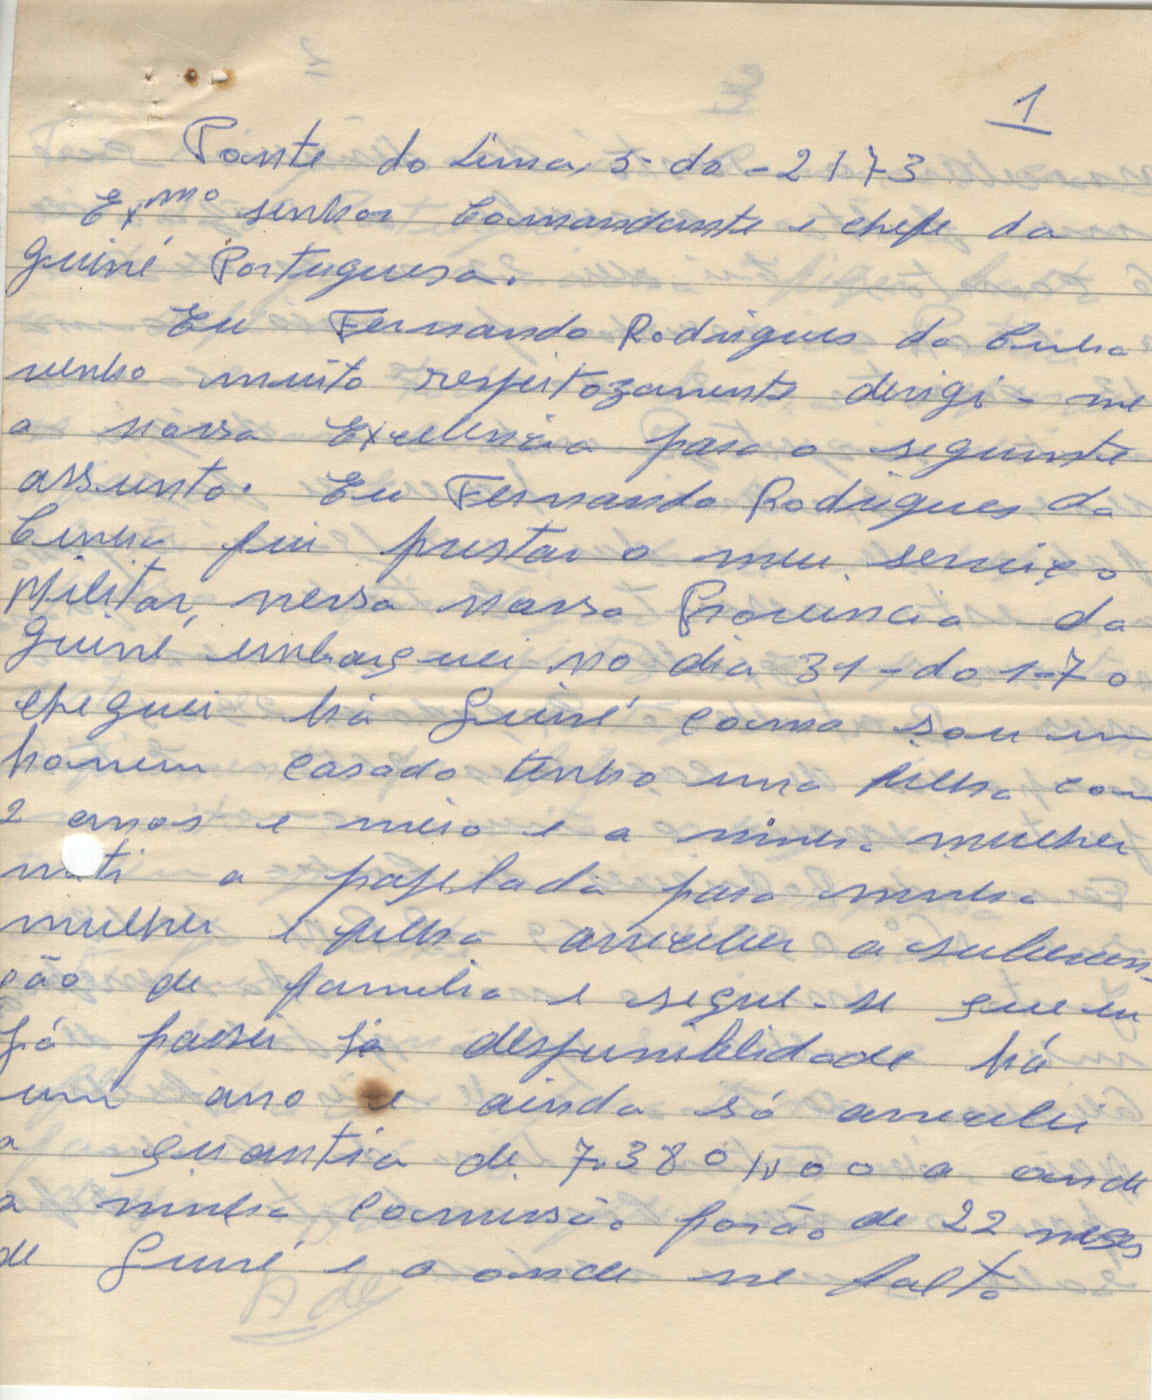 1
Ponte do Lima, 5-do-2173
Exmo senhor Comandante e chefe da
Guiné Portuguesa.
Eu Fernando Rodrigues da Cunha
venho muito respeitozamente dirigi-me
a vossa Excelencia para o seguinte
assunto. Eu Fernando Rodrigues da
Cunha fui prestar o meu serviço
Militar, nessa nossa Provincia da
Guiné, embarquei no dia 31-do 1-70
cheguei há Guiné como sou um
homem casado tenho uma filha com
2 anos e meio e a minha mulher
meti a papelada para minha
mulher e filha arreceber a subven-
ção de familia e segue-se que eu
já passei já despunibilidade há
um ano e ainda só arrecebi
a quantia de 7.380$00 a onde
a minha comissão forão de 22 meses
de Guiné e a onde me falta